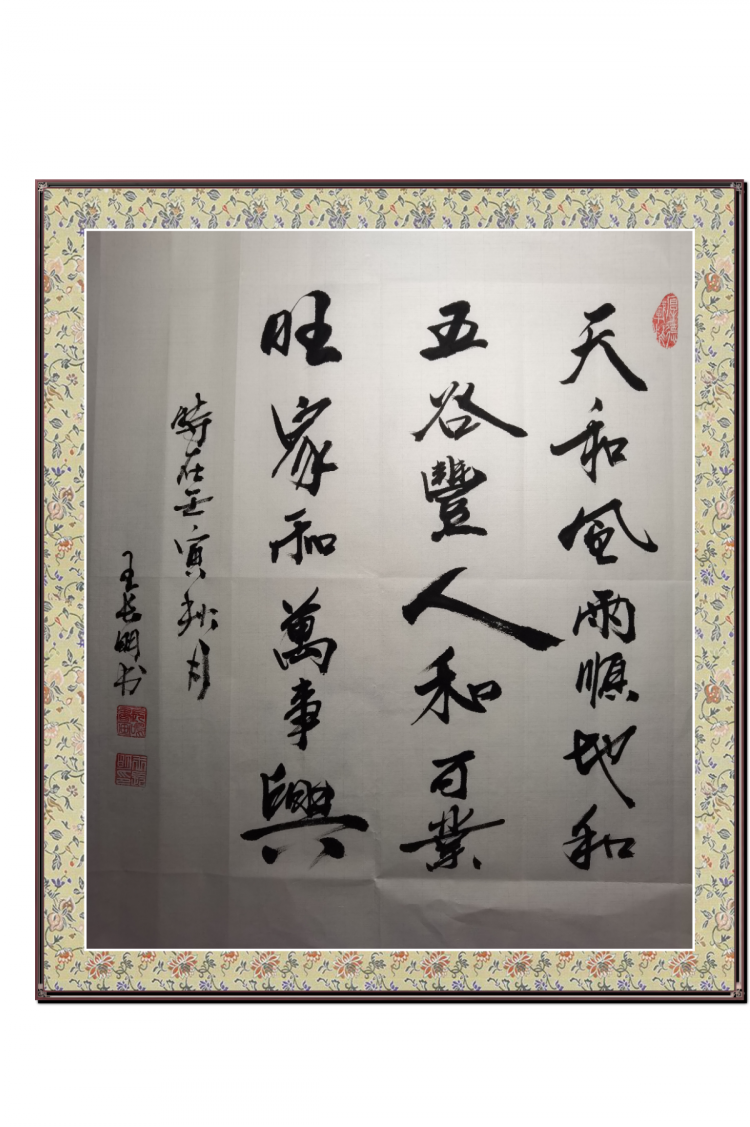 天和風雨順地和
五谷豐人和百業
旺家和萬事興
時在壬寅秋月
王长明书